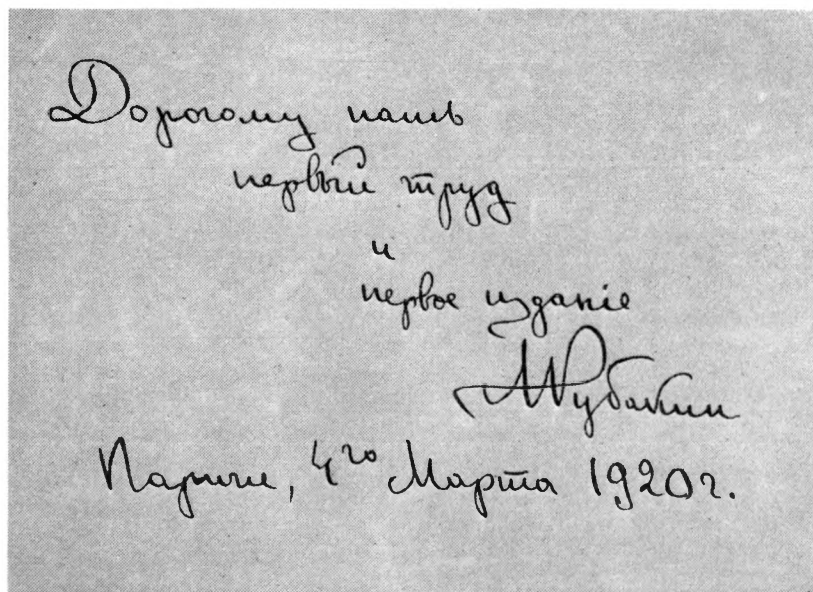 Дорогому папѣ
первый труд
и
первое изданіе
АРубакин
Париж, 4го Марта 1920 г.